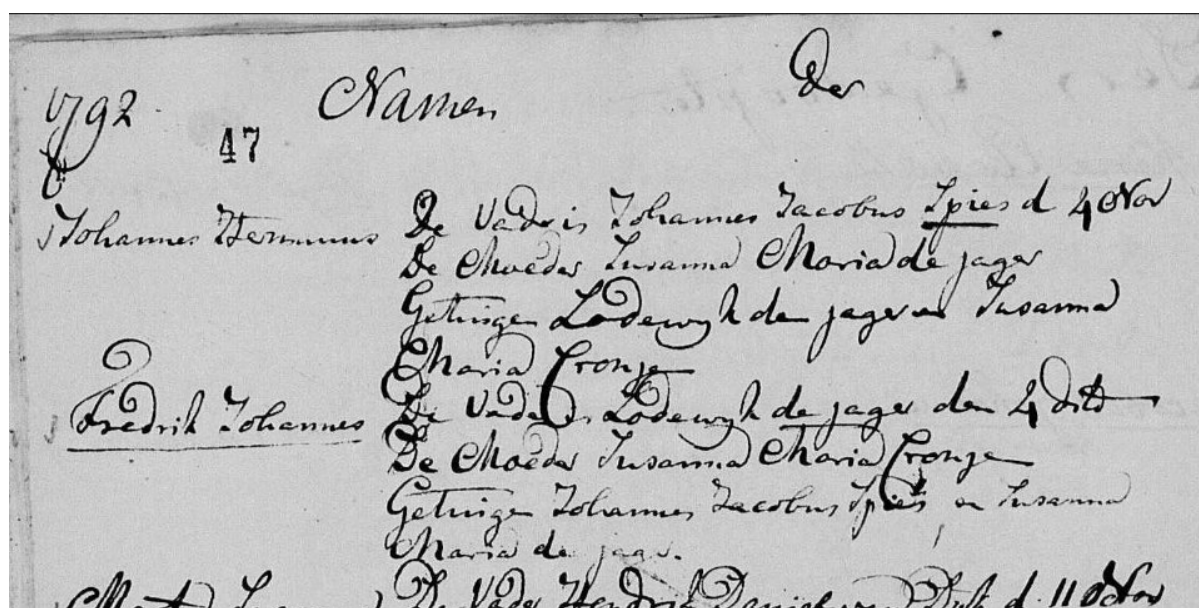 1792 Namen Der
47
Johannes Hermanus De Vader is Johannes Jacobus Spies d 4 Nov
De Moeder Susanna Maria de jager
Getuigen Lodewyk de jager en Susanna
Maria Cronje
Fredrik Johannes De Vader is Lodewyk de jager den 4 dito
De Moeder Susanna Maria Cronje
Getuigen Johannes Jacobus Spies en Susanna
Maria de jager.
De Vader Hendrik Daniel van Dyk d. 11 Nov